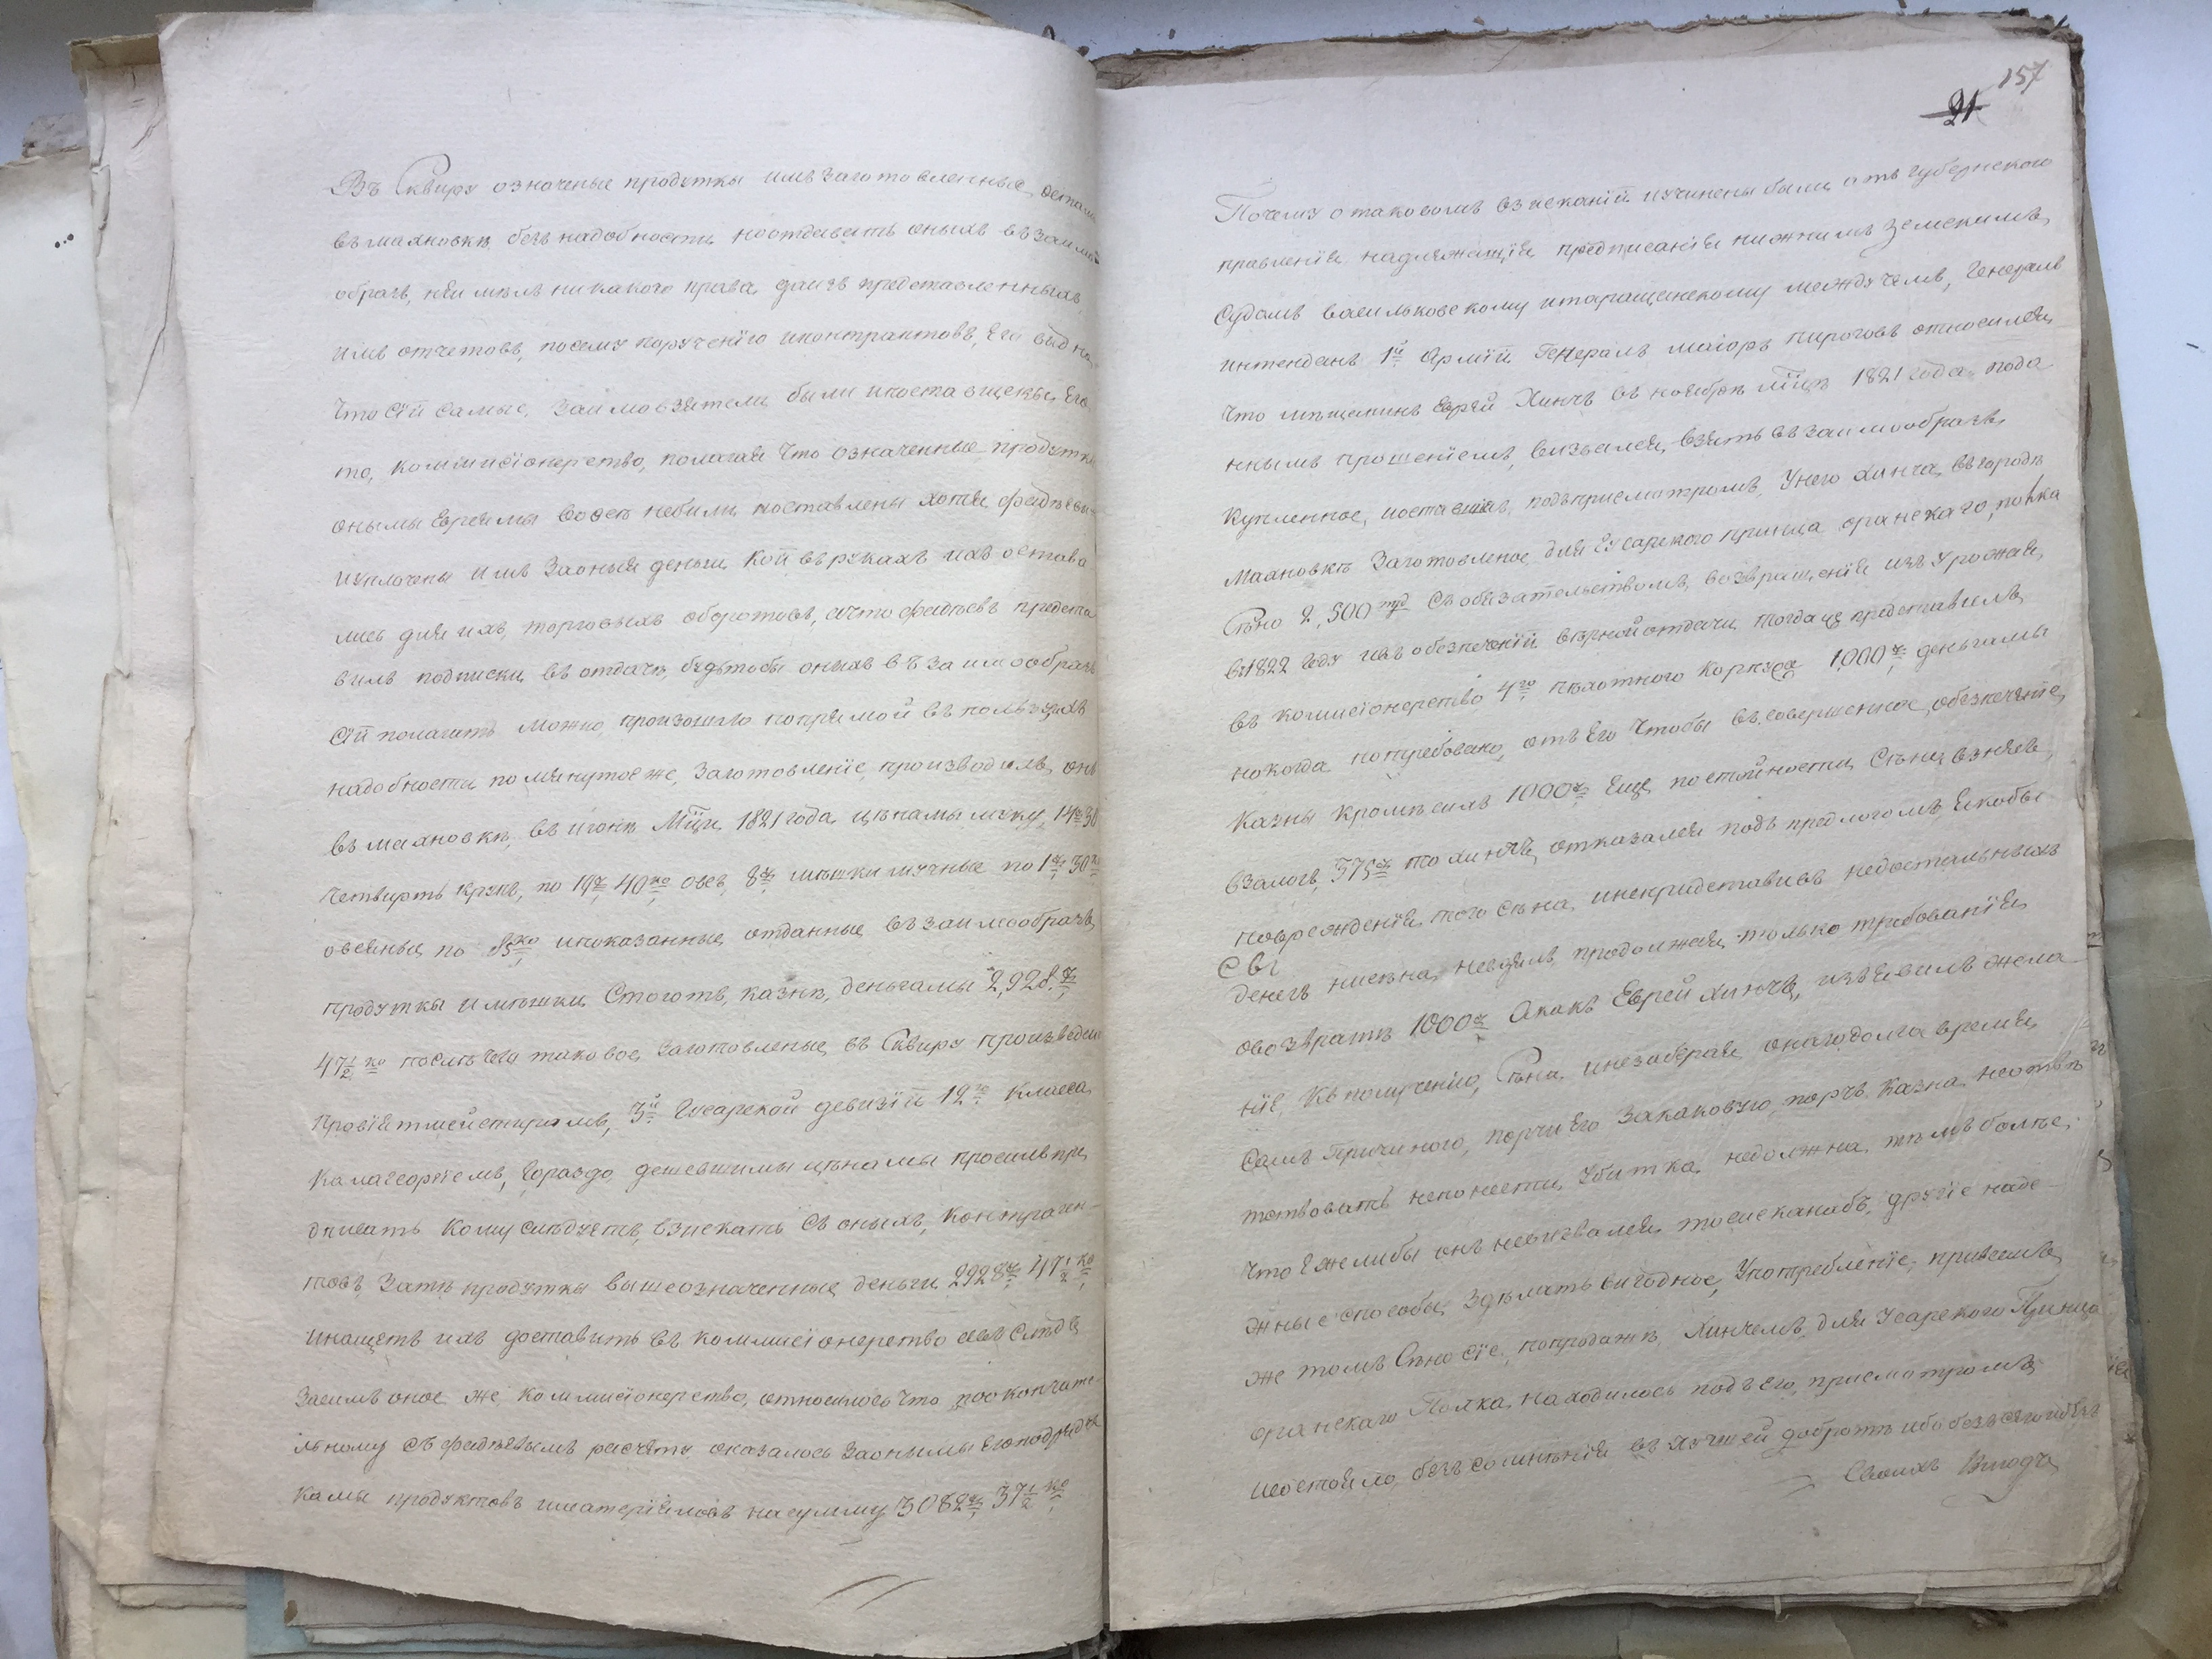 Въ Сквиру означеные продукты имъ заготовленные, остали
въ махновкѣ безъ надобности ноотдавать оныхъ въ заимо
образъ, неимѣлъ никакого права, даизъ представленныхъ
имъ отчетовъ, посему порученію иконтрактовъ, Его видно
Что сіи самые, заимовзятели были ипоставщики Его
то, коммисіонерство, полагая что означенные продукты
оными Евреями вовсе небыли поставлены хотя, фадѣевы
иуплочены имъ заоныя деньги, кои въ рукахъ ихъ остава
лись для ихъ, торговыхъ оборотовъ, ачто фадѣевъ предста
вилъ подписки, въ отдачѣ, будьтобы оныхъ въ заимообразъ
сіи полагать можно, произошло попрямой въ пользу ихъ
надобности, помянутое же, заготовленіе, производилъ, онъ
въ махновкѣ, въ июнѣ Мцѣ 1821 года, цѣнамы муку, 14 ру 30
четверть крупъ, по 19 ру 40 ко овес, 8 ру мѣшки мучные по 1 ру 30 к
овсяные по 85 ко ипоказанные, отданные въ заимообразъ,
продукты имѣшки, Стоютъ, казнѣ, деньгамы 2,928 ру
47 1/2 ко послѣ чего таковое, заготовленые, въ Сквиру произведено
Провіянтмейстеромъ, 3й Гусарской девизіи 12го Класса
Калагеоргіемъ, гораздо дешевшимы цѣнамы просилъ пре
дписать кому слѣдуетъ, взискать съ оныхъ, контраген-
товъ, затѣ продукты вышеозначенные, деньги 2928 ру 47 1/2 ко
инащетъ ихъ доставить въ коммисіонерство
засимъ оное же коммисіонерство, относилось что поокончате-
льному съ фадѣевымъ расчету оказалось заонымы
камы продуктовъ иматеріяловъ насумму 3082 ру 37 1/2 ко
157
21
Почему отаковомъ взисканіи иучинены были, отъ губернского
правленія надлежащія предписанія нижнимъ земскимъ,
судамъ васильковскому итаращанскому междучемъ, Генералъ
интендантъ 1й Арміи Генералъ маіоръ пироговъ относился,
что мѣщанинъ Еврей Хинчъ въ ноябрѣ мцѣ 1821 года, пода
ннымъ прошеніемъ, визвался, взять въ заимообразъ,
купленное, иоставшіяся подъприсмотромъ, Унего Хинча, въ городѣ
Махновкѣ заготовленое, для Гусарского принца оранскаго, полка
Сѣно 2,500 пуд съобязательствомъ, возвращенія изъ урожая,
въ 1822 году ивъ обезпеченіи вѣрной отдачи тогда же представилъ
въ комисіонерство 4го пѣхотного Корпуса 1,000 ру деньгамы
нокогда потребовано, отъ Его чтобы въ совершенное, обезпеченіе
Казны кромѣ сихъ 1000 ру Еще, постоимости Сѣна, взнясъ,
взалогъ, 375 ру то хинчъ, отказался подъ предлогомъ, Екобы
поврежденія того сѣна, инепридставивъ недостальныхъ
денегъ нисѣна, невзялъ, продолжая только требованія
СВІ
овозвратѣ 1000 ру Акакъ Еврей хинчъ, изъявилъ жела
ніе, къполученію, Сѣна, инезабирая онагодолга время,
Самъ причиного, порчи Его закаковую, порчь Казна неотвѣ
тствовать непонести, убитка, недолжна, тѣмъ болѣе,
Что Ежелибы онъ невизвался, тосисканобъ, другіе наде-
жные способы, здѣлать вигодное, употребленіе, притомъ
же томъ Сѣно сіе, попродажѣ Хинчемъ, для Усарского Принца
оранскаго Полка, находилось подъ Его, присмотромъ,
исостояло, безъ сомнѣнія въ лучшей добротѣ ибо безъ сего
Своихъ Вигодъ,